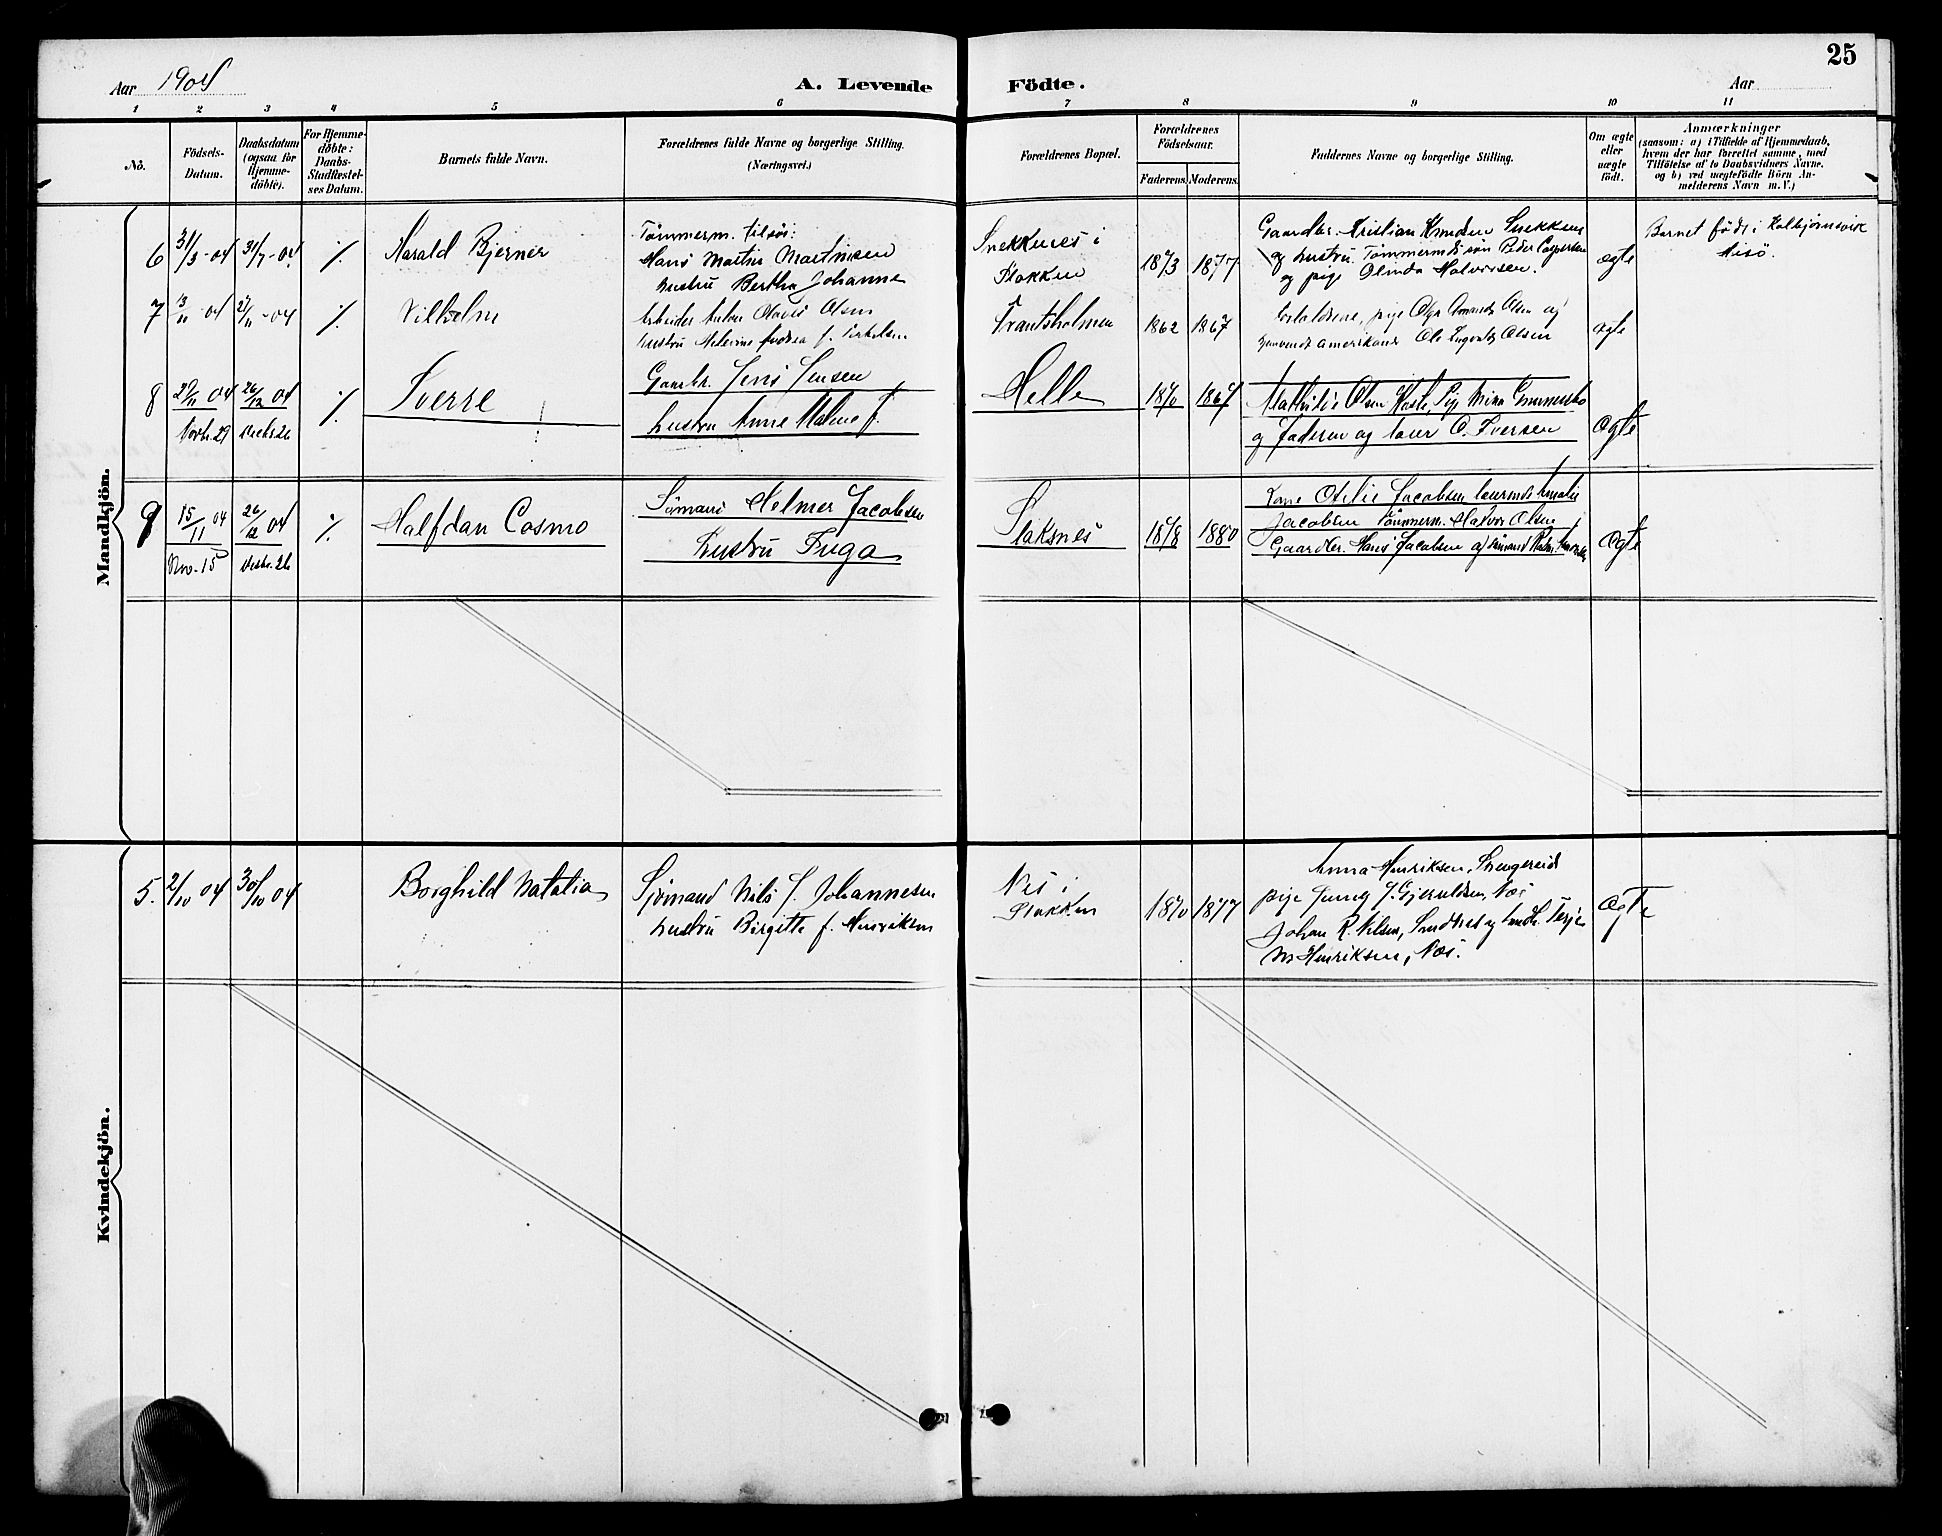 25
Aar 1904
A. Levende Födte.
Aar
1 2 3 4 5 6 7 8 9 10 11
No.
Födsels-Datum.
Daabsdatum (ogsaa for Hjemme-döbte).
For Hjemme-döbte: Daabs-Stadfæstel-ses Datum.
Barnets fulde Navn.
Forældrenes fulde Navne og borgerlige Stilling. (Næringsvei.)
Forældrenes Bopæl.
Forældrenes Födselsaar.
Faderens. Moderens.
Faddernes Navne og borgerlige Stilling.
Om ægte eller uægte födt.
Anmærkninger
(saasom: a) i Tilfælde af Hjemmedaab,
hvem der har forrettet samme, med
Tilföielse af to Daabsvidners Navne,
og b) ved uægtefödte Börn An-
melderens Navn m. V.)
Mandkjön.
6 31/3-04 31/7-04 % Harald Bjerner
Tømmerm. tilsøs:
Hans Martin Martinsen
hustru Bertha Johanne
Snekknes i
Flakken
1873 1877
Gaardbr. Kristian Knudsen
og hustru. Tømmermd
og pige Olinda Halvorsen.
ægte
Barnet født i Kolbjørnsvik
Hisø.
7 13/11-04 27/11-04 % Vilhelm
Arbeider Anton Olaus Olsen
hustru
Frantsholmen
1862 1867
Forældrene, pige Olga Amanda Olsen og
hjemvendt amerikaner Ole Olsen
ægte
8 29/11 04 26/12 04 % Sverre
Novbr. 29 Decbr. 26
Gaardbr. Jens Jensen
hustru Anne Malene J.
Helle
1870 1867
Mathilde Olsen
og faderen og O. Iversen
ægte
9 15/11 04 26/12 04 % Halfdan Cosmo
Nov. 15 Decbr. 26
Sömand Helmer Jacobsen
hustru Inga
Flaksnes
1878 1880
Kone Otilie Jacobsen
Jacobsen Tömmerm. Halvor Olsen
Gaardbr. Hans Jacobsen og sömand
ægte
Kvindekjön.
5. 2/10 04 30/10 04 Borghild Natalia
Sjømand Nils J. Johannesen
hustru Birgitte f. Henriksen
Nes i
Flakken
1870 1877
Anna Henriksen, Songereid
pige Jenny J. Gjeruldsen, Næs
Johan R. Nilsen, og Terje
Henriksen, Næs.
ægte